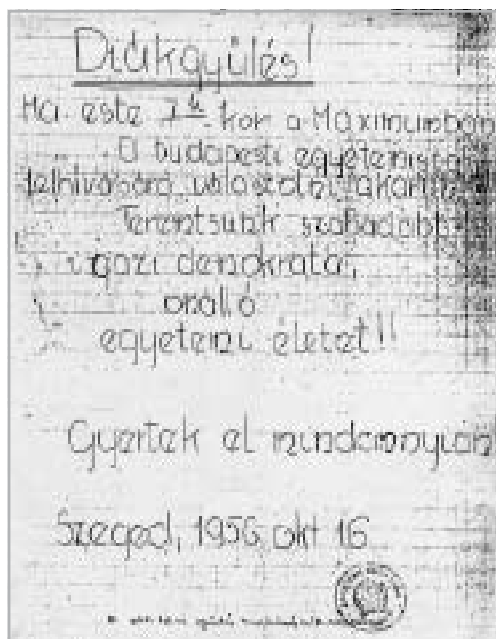 Diákgyűlés!
Ma este 7h-kor a Maximumban
A budapesti egyetemisták
felhívására válaszolni akarunk
Teremtsünk szabadabb
igazi demokrata,
önálló
egyetemi életet!!
Gyertek el mindannyian!
Szeged, 1956 okt 16.